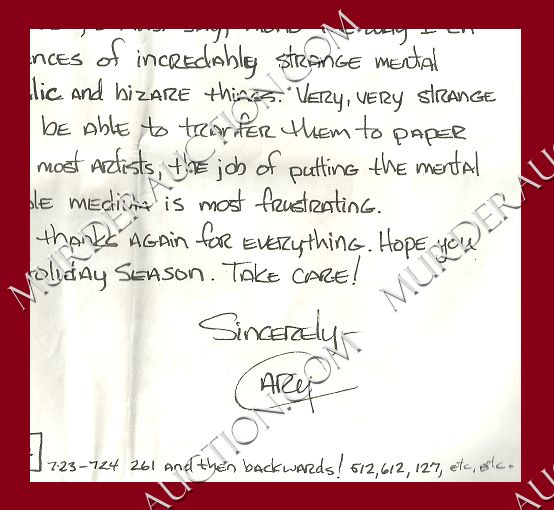 ences of incrediably strange mental
lic and bizare things. Very, very strange
be able to tranfer them to paper
most artists, the job of putting the mental
le medium is most frustrating.
thanks again for everything. Hope you
oliday season. Take care!
Sincerely-
Ary
7-23-724 261 and then backwards! 512,612,127, etc, etc.
MURDERAUCTION.COM
MURDERAUCTION.COM
MURDERAUCTION.COM